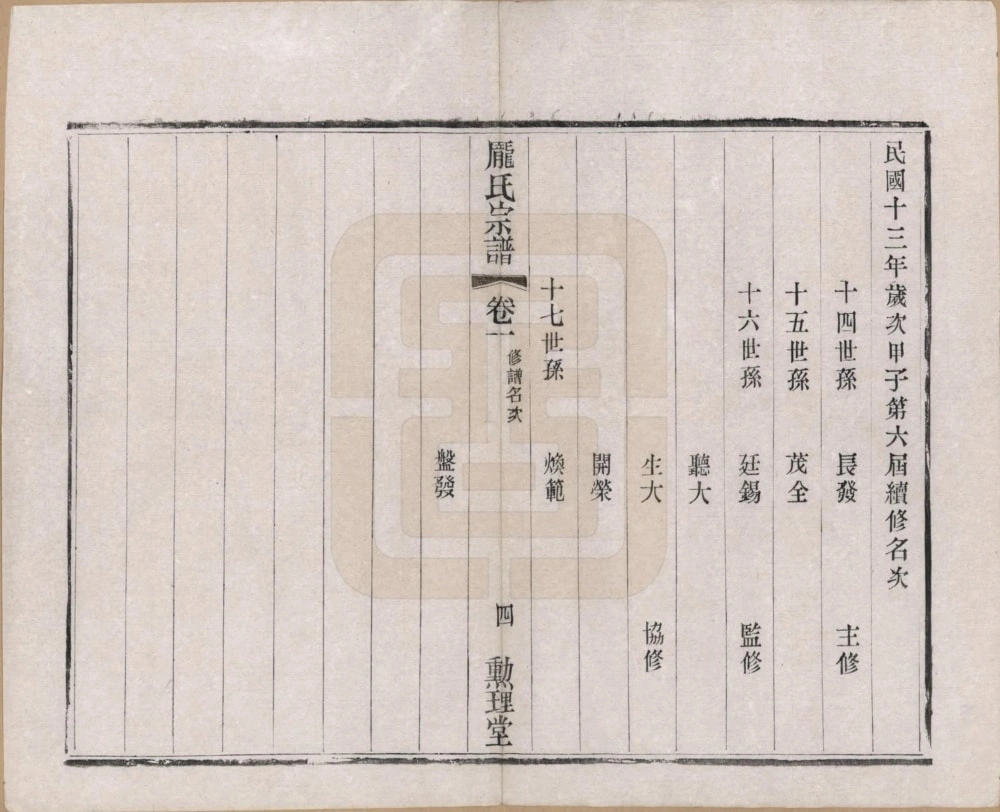 民國十三年歲次甲子第六屆續修名次
十四世孫 長發 主修
十五世孫 茂全
十六世孫 廷錫 監修
聽大
生大 協修
開榮
十七世孫 煥範
龐氏宗譜 卷一 修譜名次 四 勲理堂
盤發